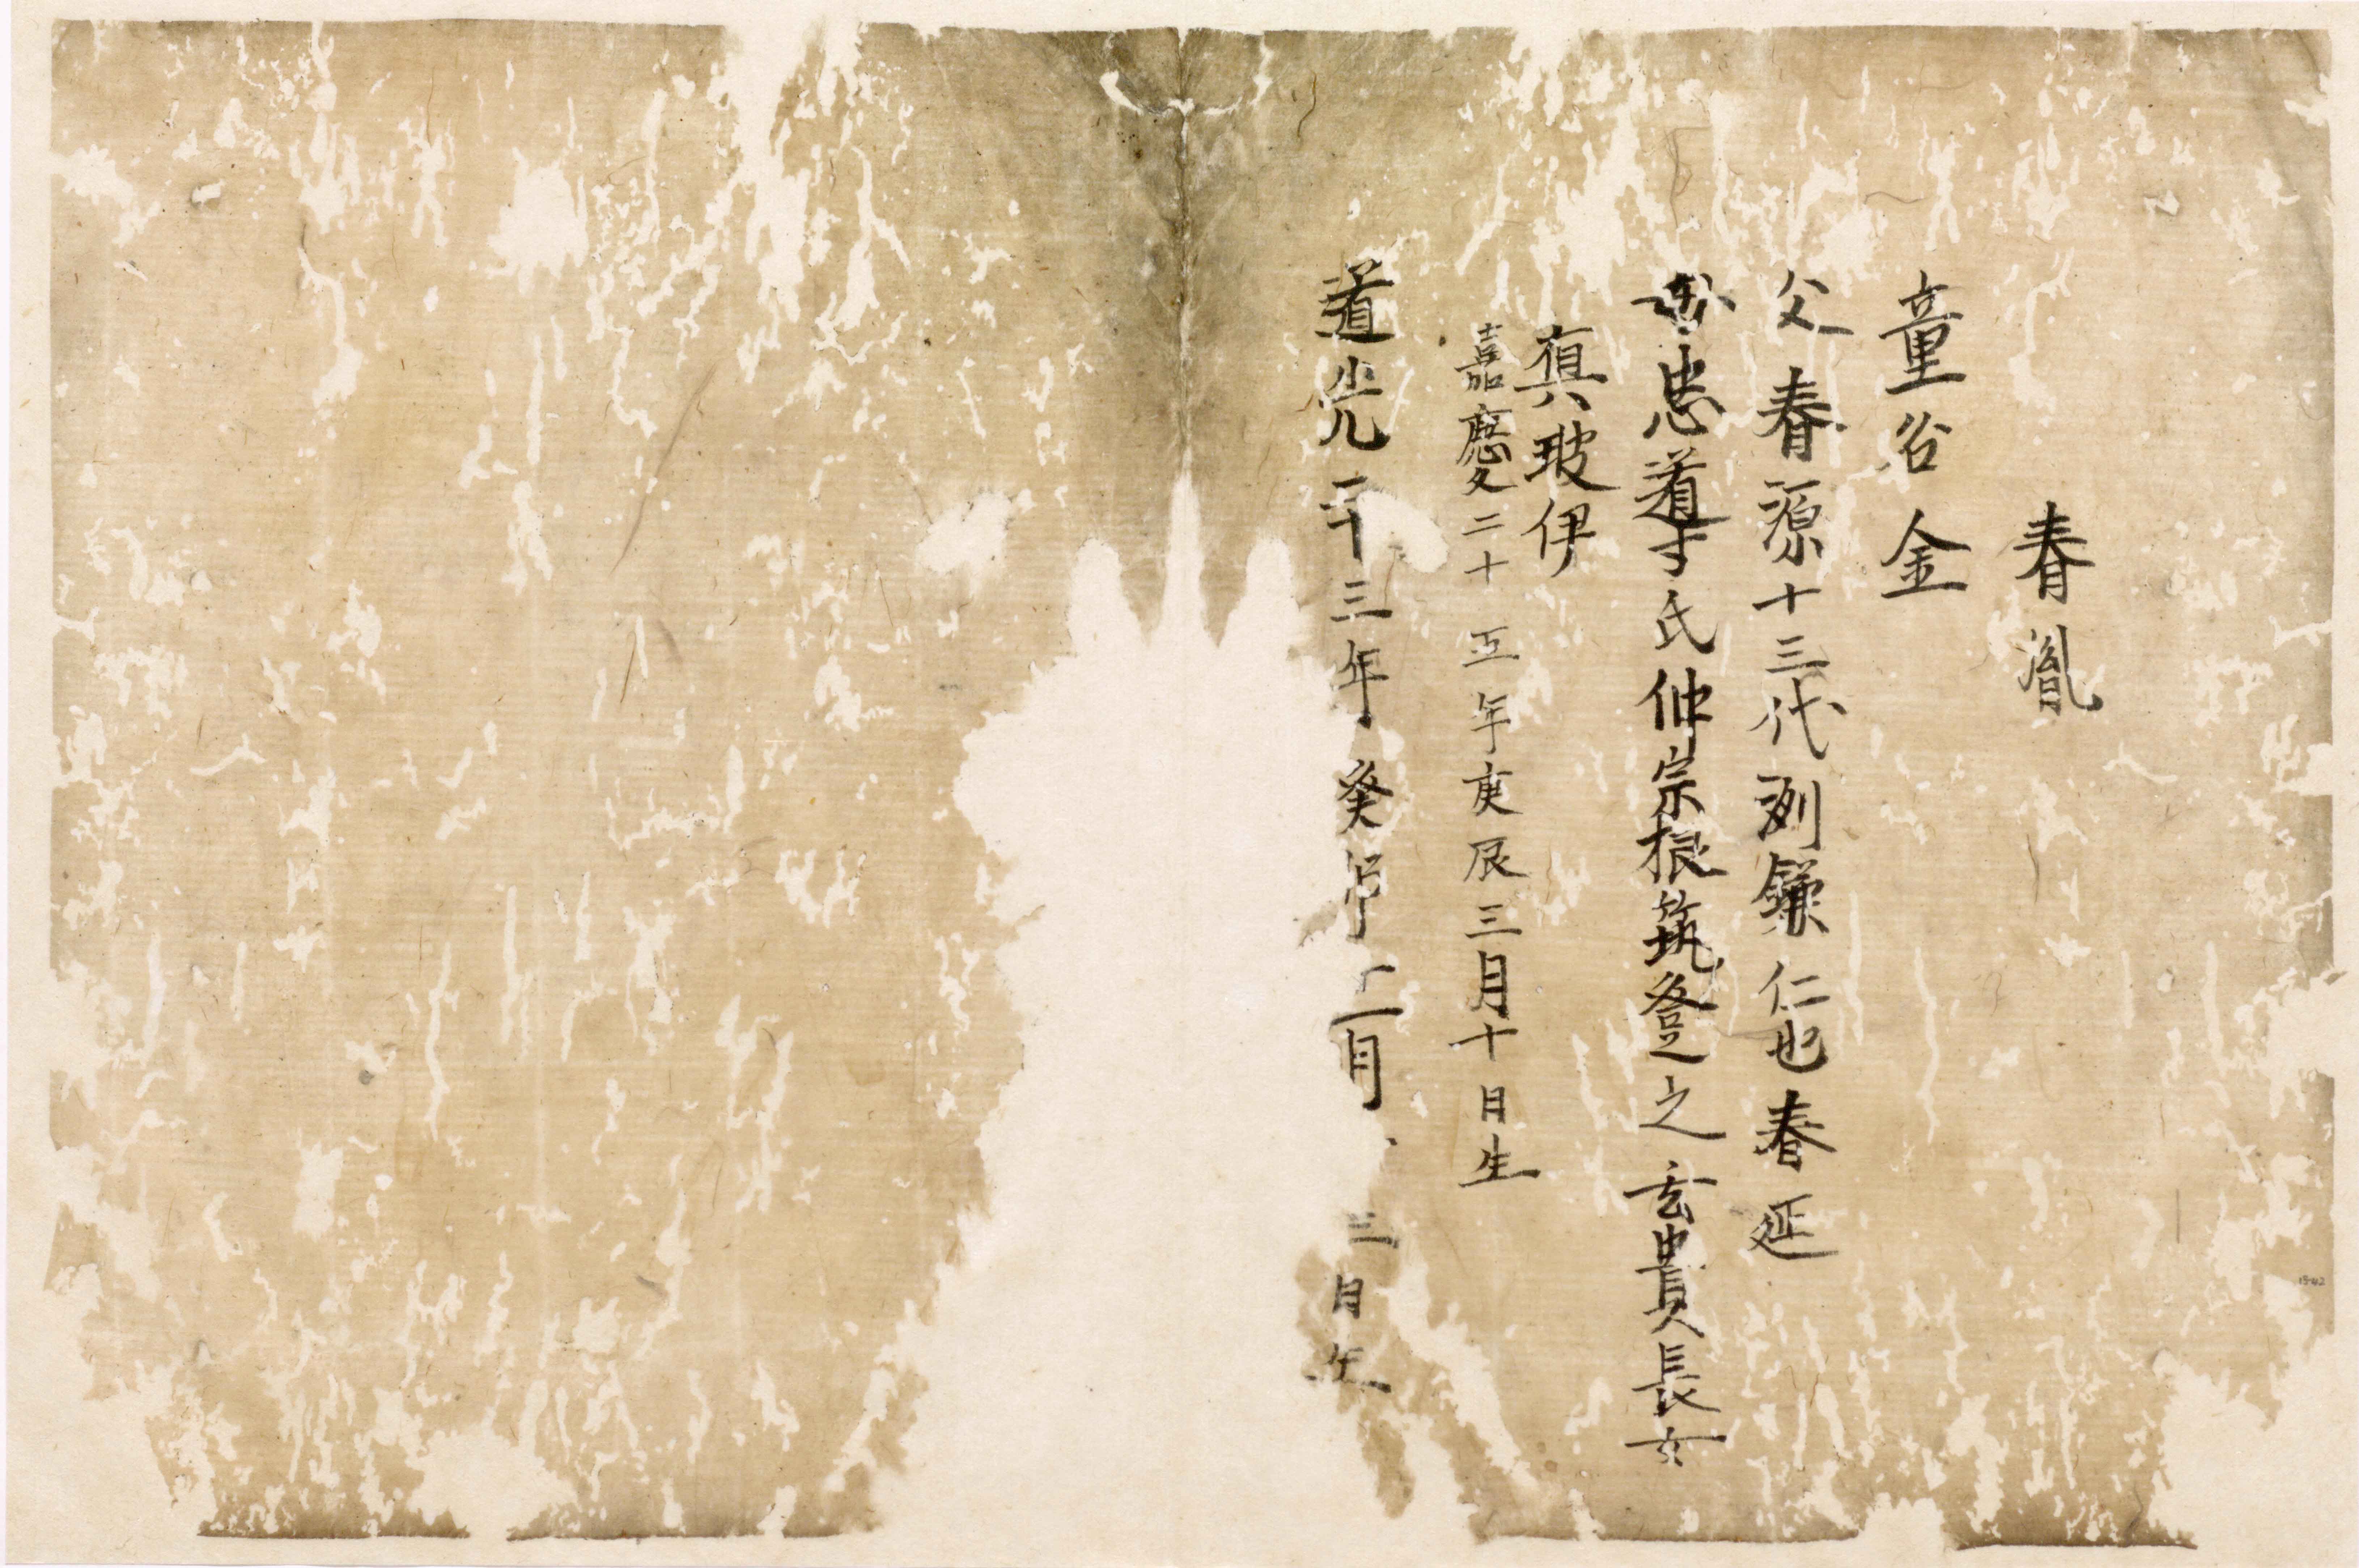 春胤
童名金
父春源十三代洌鎌仁也春延
母忠導氏仲宗根筑登之玄貴長女
真玻伊
嘉慶二十五年庚辰三月十日生
道光二十三年癸卯二月三日生